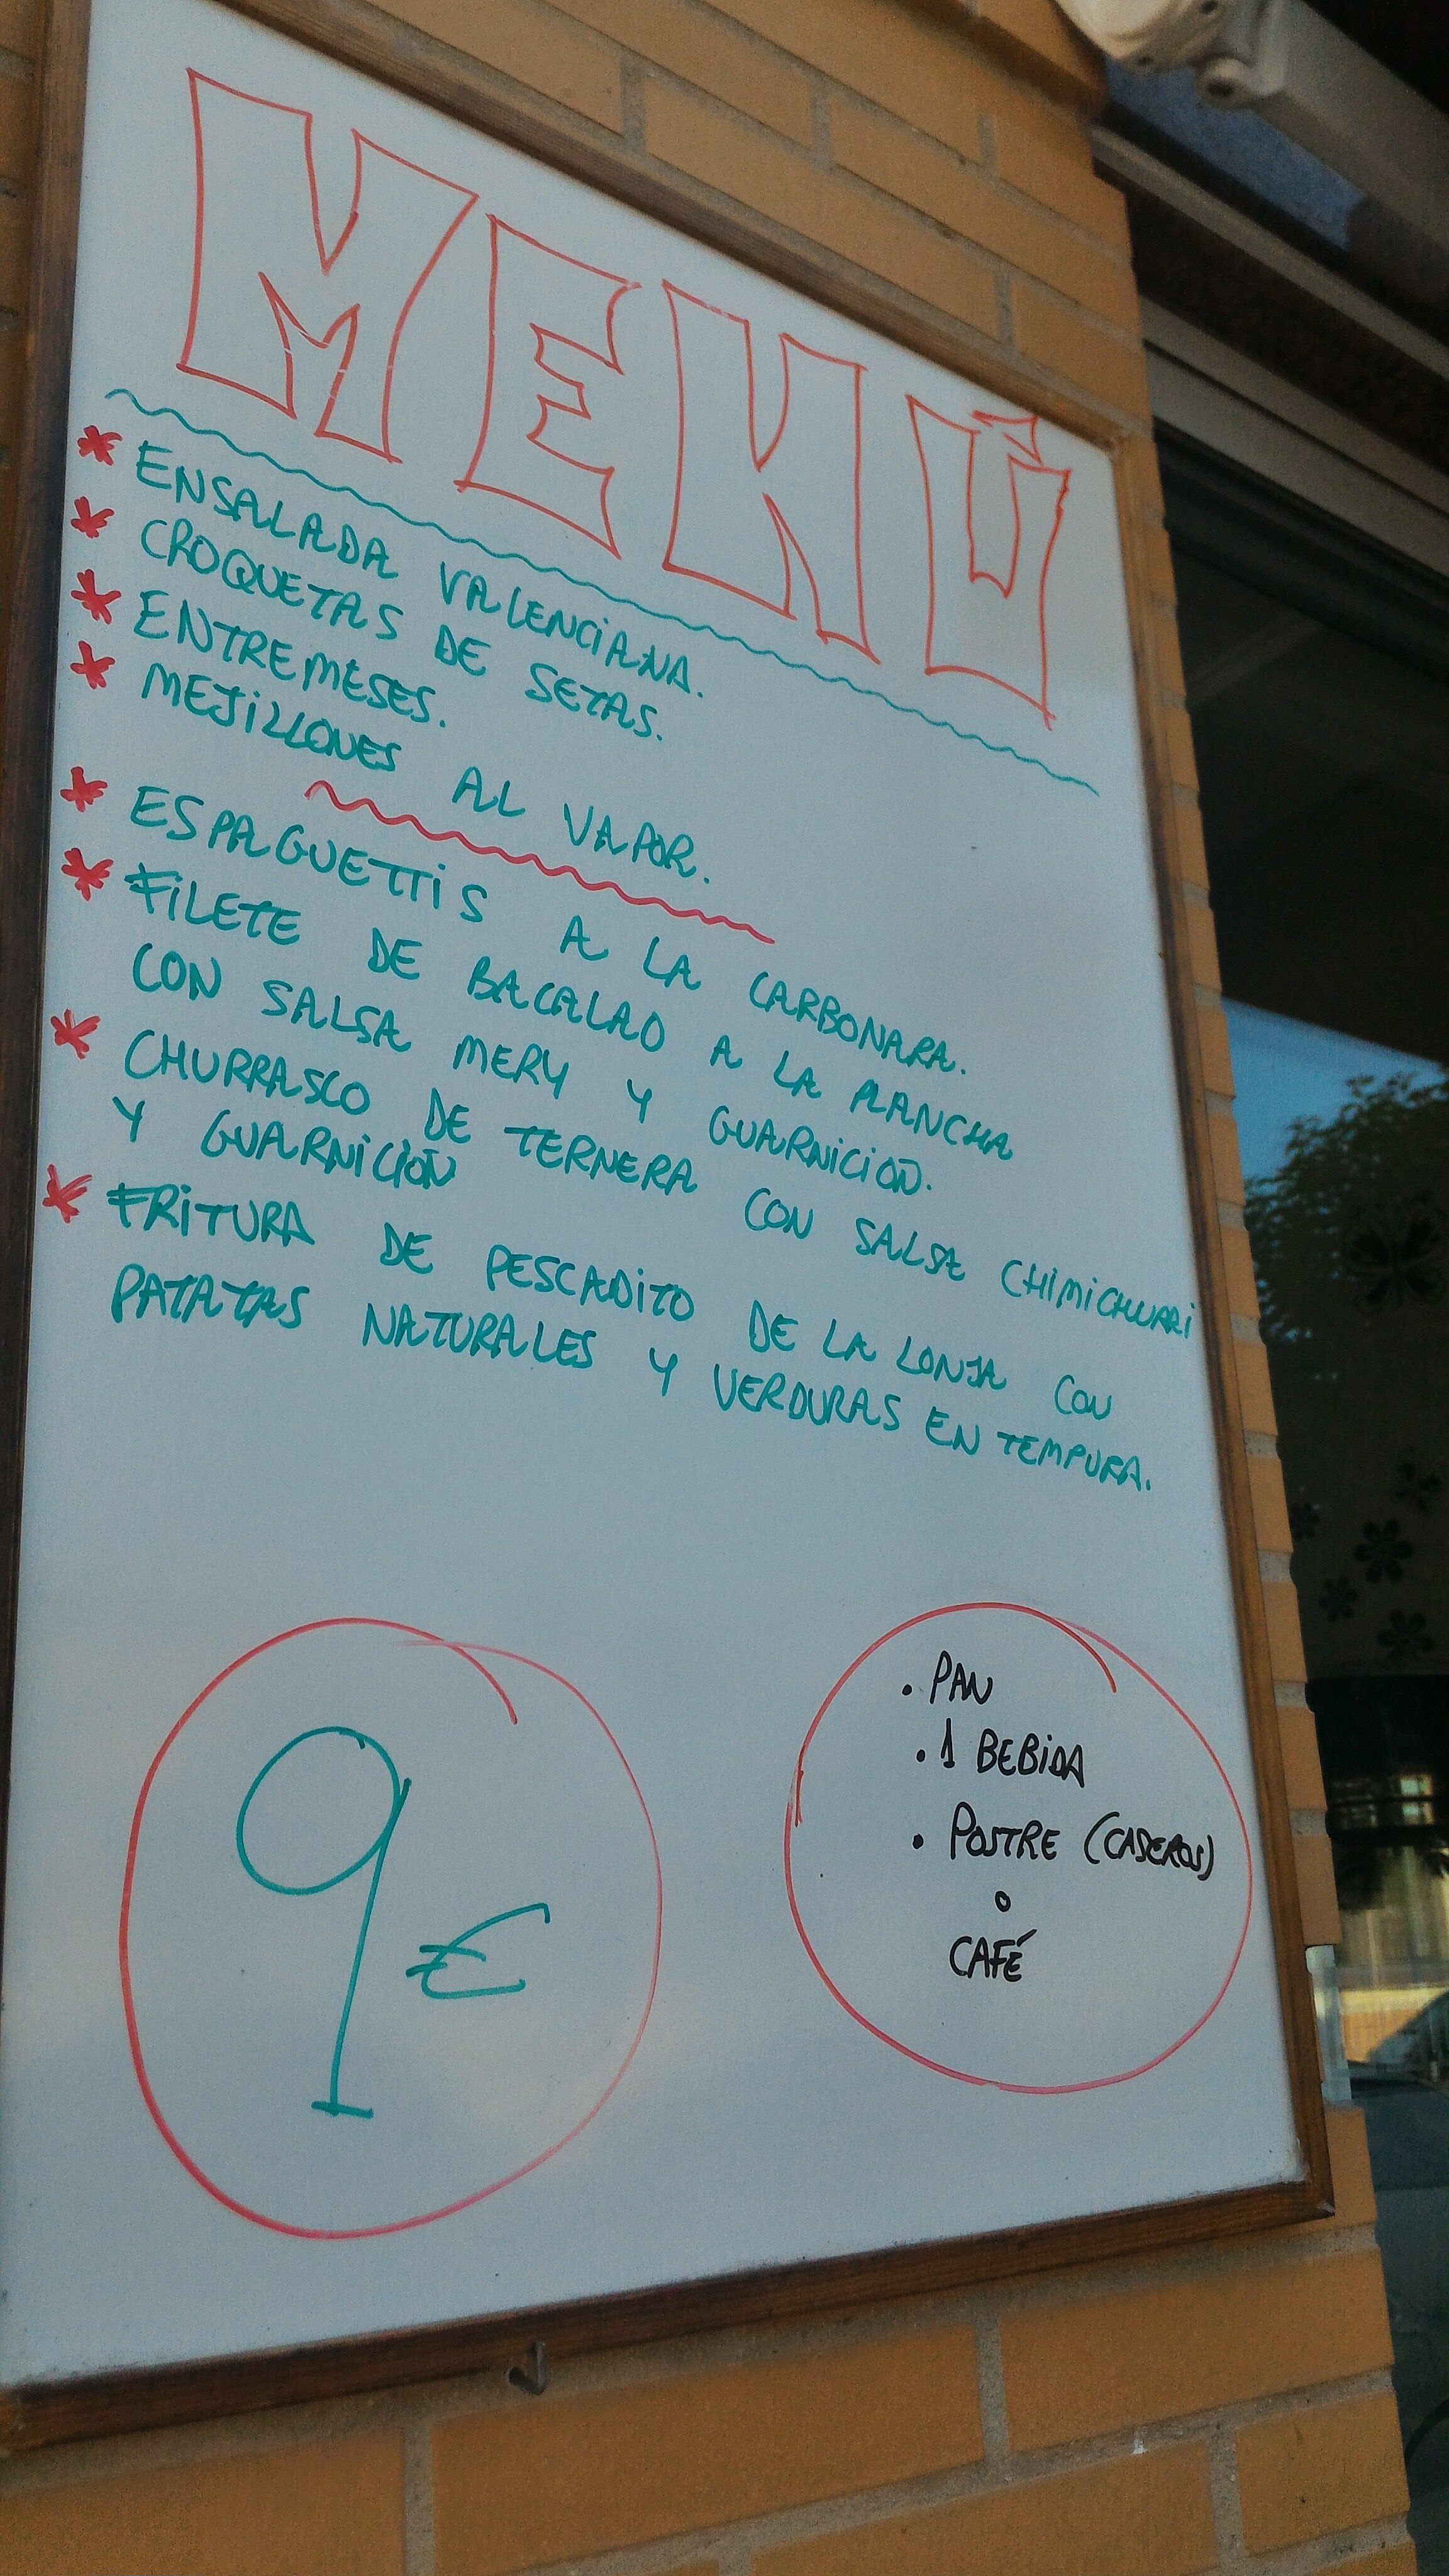 MENÚ
* ENSALADA VALENCIANA.
* CROQUETAS DE SETAS.
* ENTREMESES.
* MEJILLONES AL VAPOR.
* ESPAGUETTIS A LA CARBONARA.
* FILETE DE BACALAO A LA PLANCHA
CON SALSA MERY Y GUARNICIOÑ.
* CHURRASCO DE TERNERA CON SALSA CHIMICHURRI
Y GUARNICIOÑ
* FRITURA DE PESCADITO DE LA LONJA CON
PATATAS NATURALES Y VERDURAS EN TEMPURA.
9 €
. PAN
. 1 BEBIDA
. POSTRE (CASEROS)
o
CAFÉ